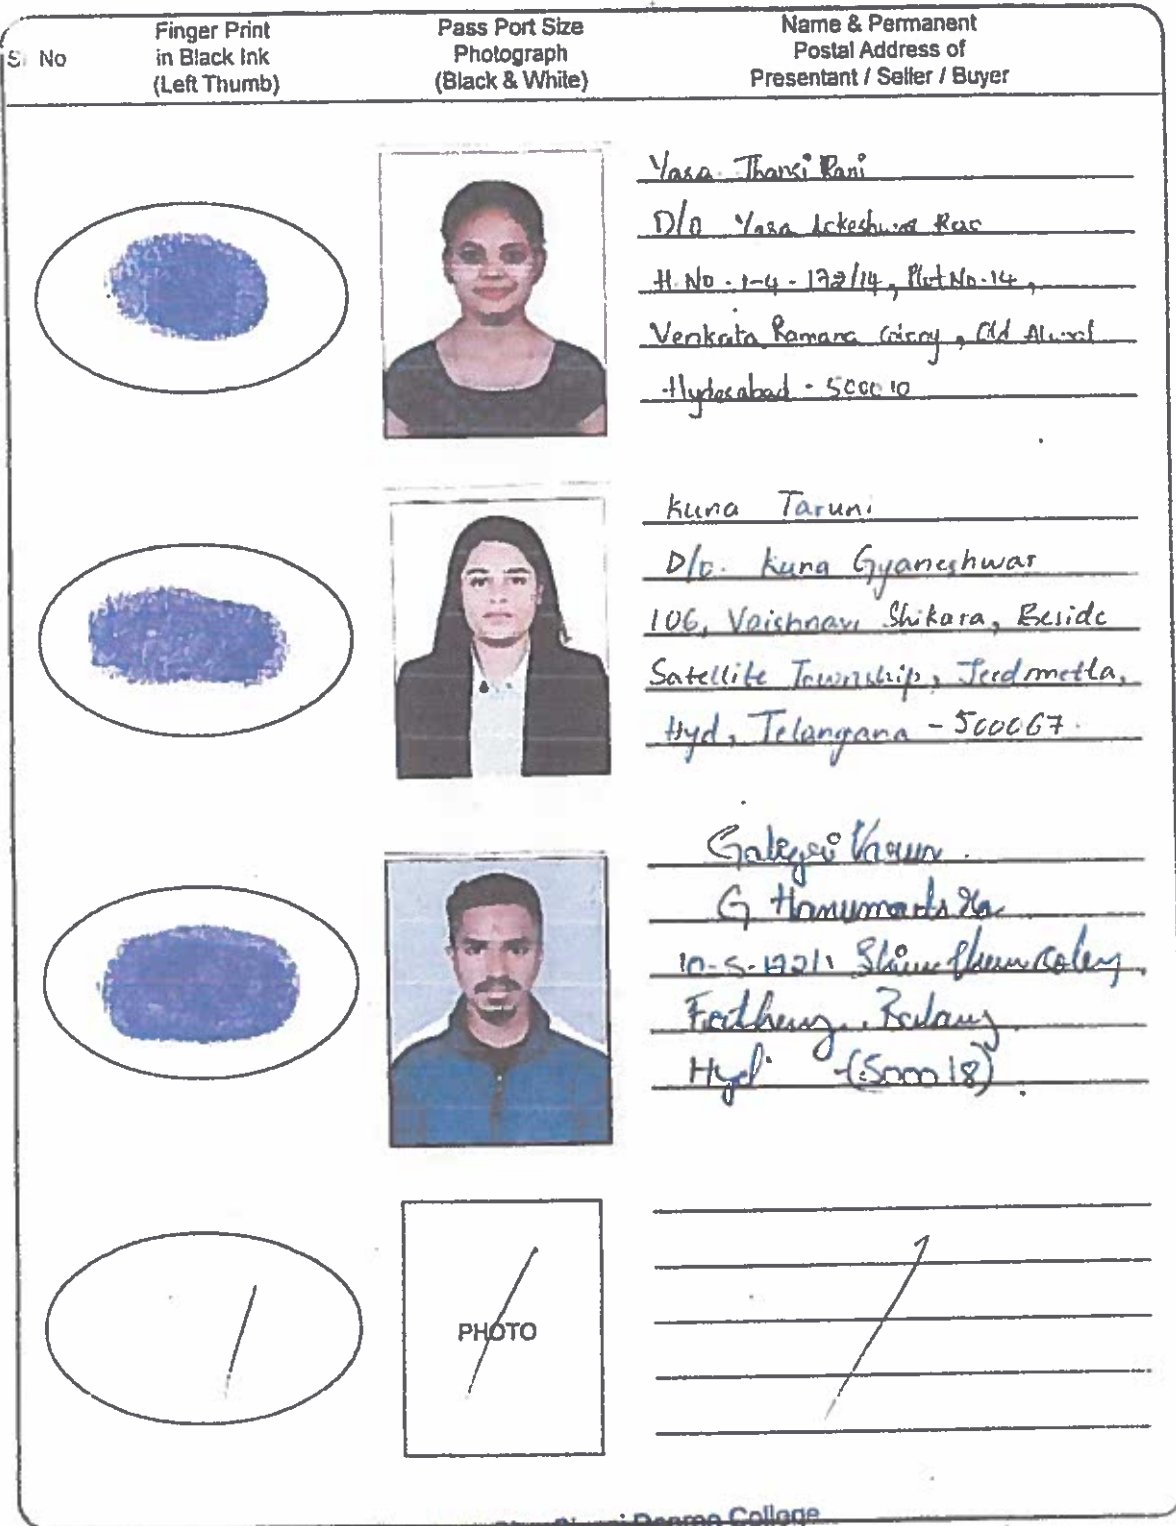 S. No
Finger Print
in Black Ink
(Left Thumb)
Pass Port Size
Photograph
(Black & White)
Name & Permanent
Postal Address of
Presentant / Seller / Buyer
Yasa Thansi Rani
D/o Yasa Rao
H. No. 1-4-172/14, Plot No. 14,
Venkata Ramana Colony, Old Alwal
Hyderabad - 500010
Kuna Taruni
D/o. Kuna Gyaneshwar
106, Vaishnavi Shikara, Beside
Satellite Township, Jeedmetla,
Hyd, Telangana - 500067.
G
10-5-
Hyd (500018)
PHOTO
Degree College